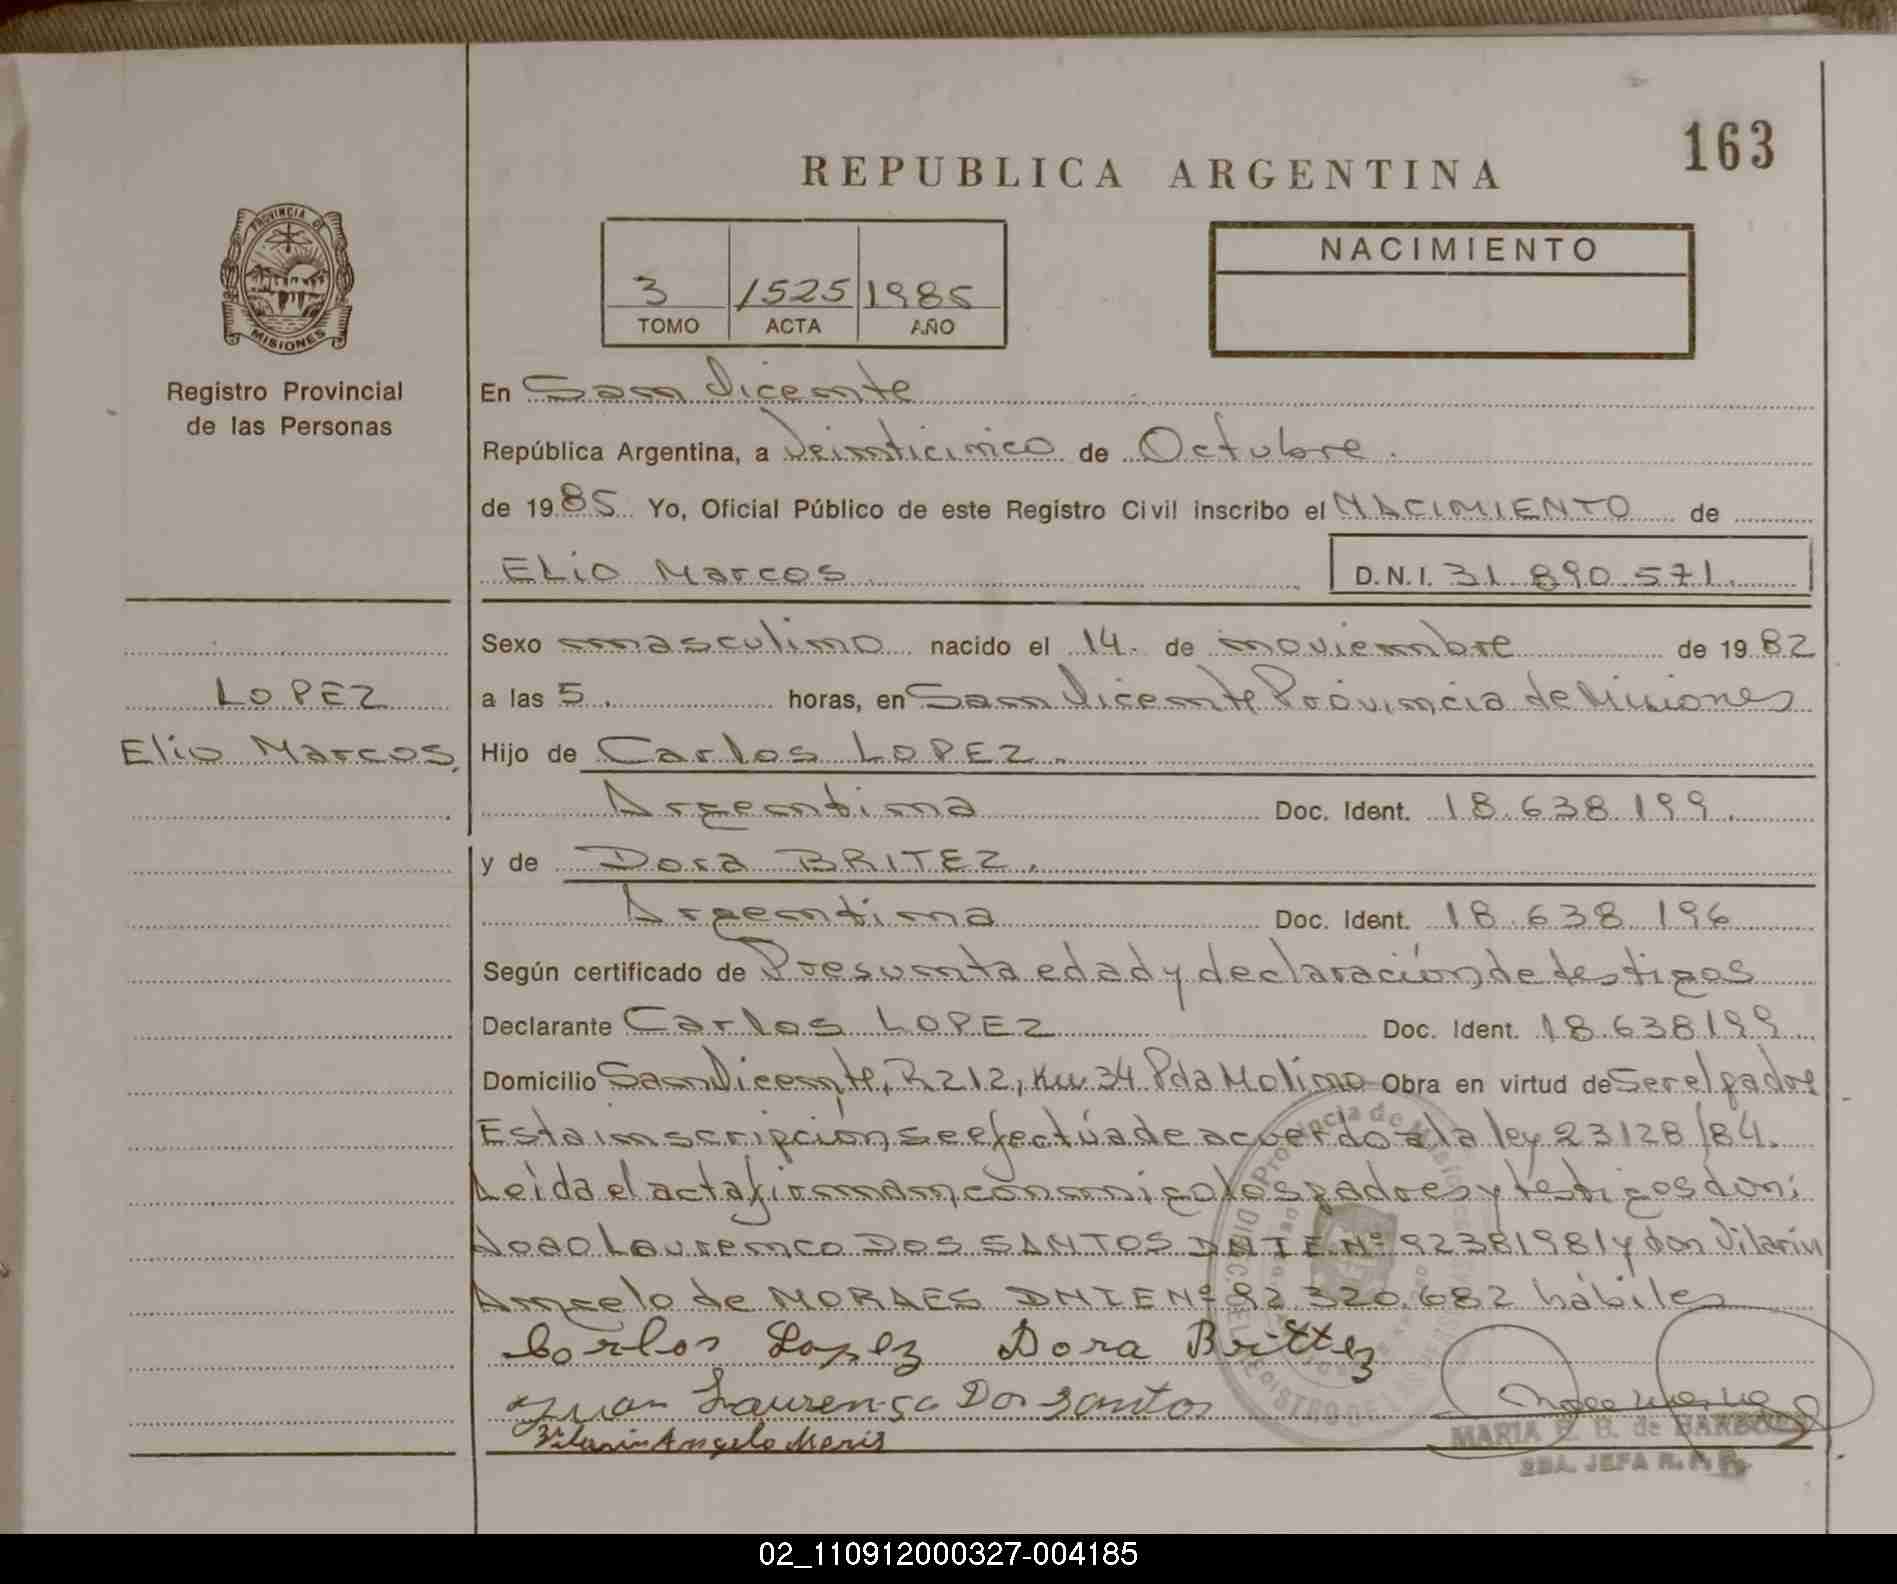 163
REPUBLICA ARGENTINA
PROVINCIA DE
MISIONES
Registro Provincial
de las Personas
3 1525 1985
TOMO ACTA AÑO
NACIMIENTO
En San Vicente
República Argentina, a Veinticinco de Octubre.
de 1985 Yo, Oficial Público de este Registro Civil inscribo el NACIMIENTO de
ELIO MARCOS D.N.I. 31.890.571.
LOPEZ
Elio Marcos.
Sexo masculino nacido el 14. de noviembre de 1982
a las 5. horas, en San Vicente Provincia de Misiones
Hijo de Carlos LOPEZ.
Argentina Doc. Ident. 18.638.199.
y de Dora BRITEZ.
Argentina Doc. Ident. 18.638.196
Según certificado de Presunta edad y declaración de testigos
Declarante Carlos LOPEZ Doc. Ident. 18.638199
Domicilio San Vicente, R212, Km 34 Pda Molino Obra en virtud de Ser el padre
Esta inscripción se efectúa de acuerdo a la ley 23128/84.
Leída el acta firman conmigo los padres y testigos don:
Joao Laurenco DOS SANTOS DNIE Nº 92381981 y don Vilarin
Angelo de MORAES DNIE Nº 92.320.682 hábiles
Carlos Lopez Dora Brittez
Juan Laurença Dos santos
Vilarin Angelo Meris
MARIA E. B. de BARBOZA
2DA. JEFA R. P. P.
02_110912000327-004185